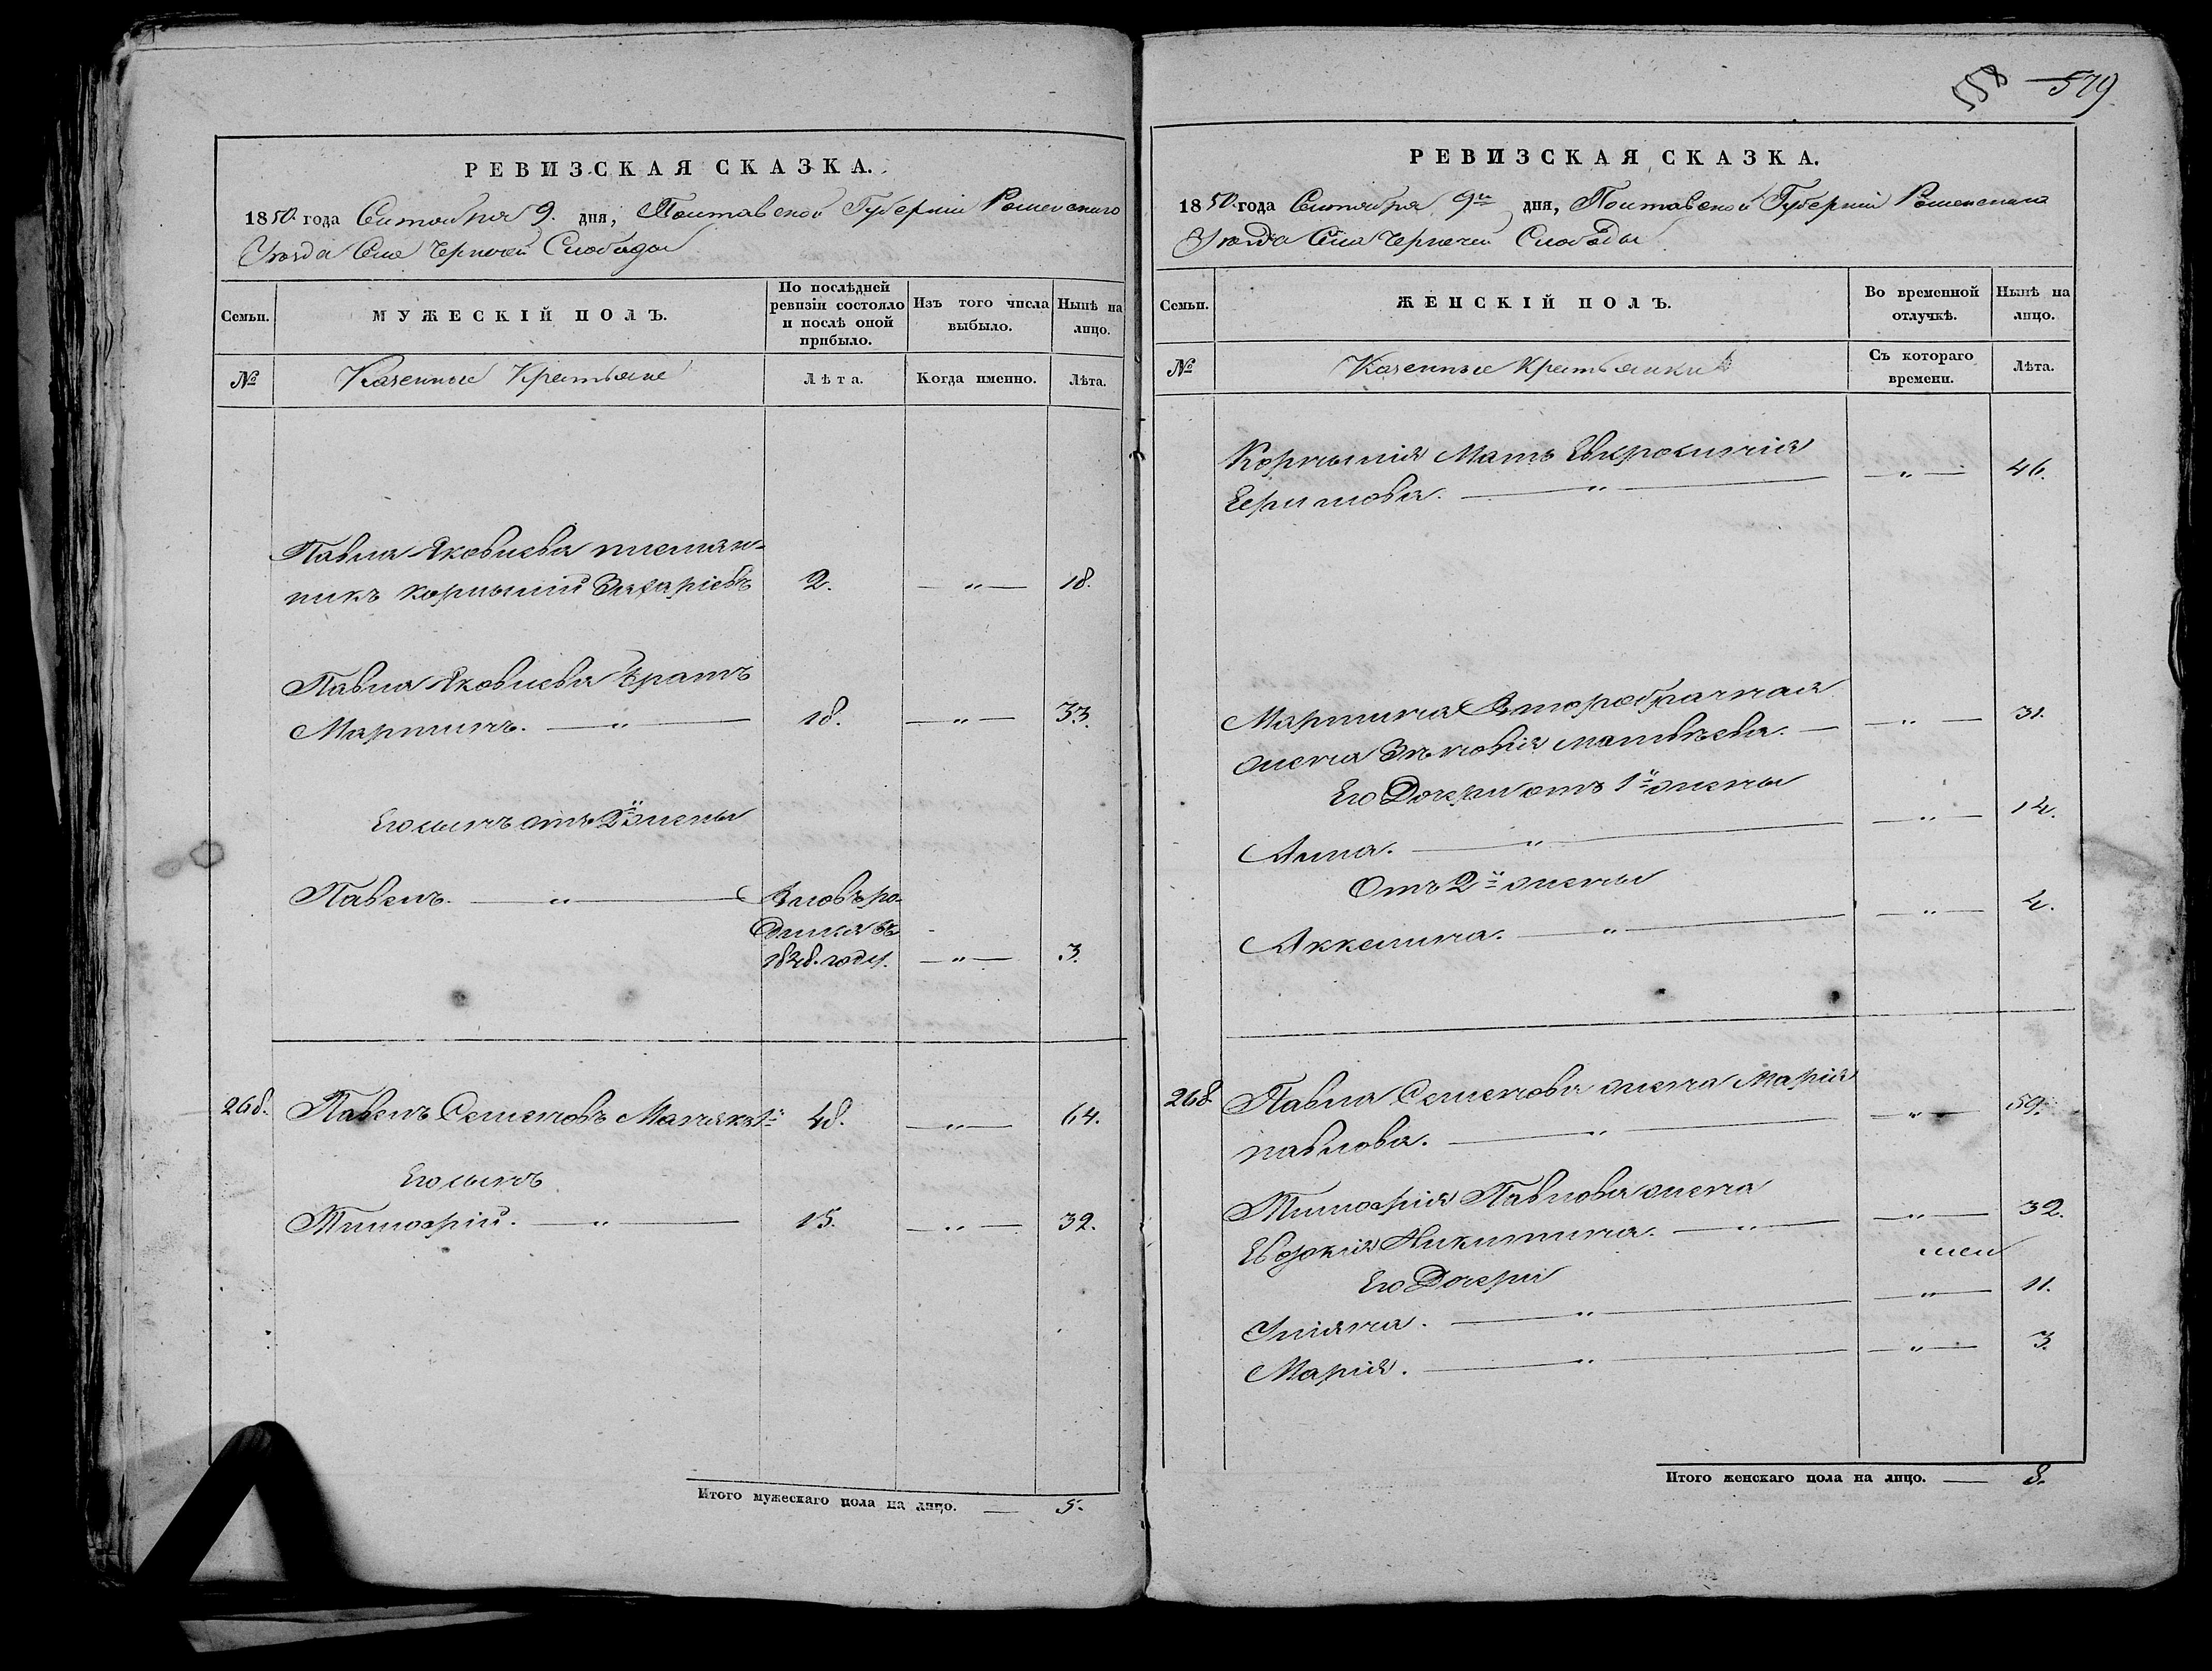 РЕВИЗСКАЯ СКАЗКА.
1850. года Сентября 9. дня, Полтавской Губернiи Роменского
Уѣзда Села Чернечей Слободы
Семьи.
МУЖЕСКIЙ ПОЛЪ.
По послѣдней
ревизiи состояло
и послѣ оной
прибыло.
Изъ того числа
выбыло.
Нынѣ на
лицо.
№
Казенные Крестьяне
Лѣта.
Когда именно.
Лѣта.
Павла Яковлева племян-
никъ Корнилiй Захарiевъ 2. — „ — 18.
Павла Яковлева братъ
Мартинъ. — „ — 18. — „ — 33.
Его сынъ отъ 2й жены
Павелъ. — „ — Вновь ро-
дился въ
1848. году. — „ — 3.
268. Павелъ Семеновъ 1й 48. — „ — 64.
Его сынъ
Тимофiй. — „ — 15. — „ — 32.
Итого мужескаго пола на лицо. — 5.
558 579
РЕВИЗСКАЯ СКАЗКА.
1850. года Сентября 9го дня, Полтавской Губернiи Роменскаго
Уѣзда Села Чернечей Слободы
Семьи.
ЖЕНСКIЙ ПОЛЪ.
Во временной
отлучкѣ.
Нынѣ на
лицо.
№
Казенные Крестьянки
Съ котораго
времени.
Лѣта.
Корнилiя Мать Евфросинiя
Ефимова. — „ — — „ — 46.
Мартина Второбрачная
жена Зѣновiя Матвѣева. — — „ — 31.
Его Дочери отъ 1й жены
Анна. — „ — — „ — 14.
Отъ 2й жены
Аккелина. — „ — — „ — 4.
268. Павла Семенова жена Марiя
Павлова. — „ — — „ — 59.
Тимофiя Павлова жена
Евдокiя Никитина. — „ — — „ — 32.
Его Дочери
Улiяна. — „ — — „ — 11.
Марiя. — „ — — „ — 3.
Итого женскаго пола на лицо. — 8.